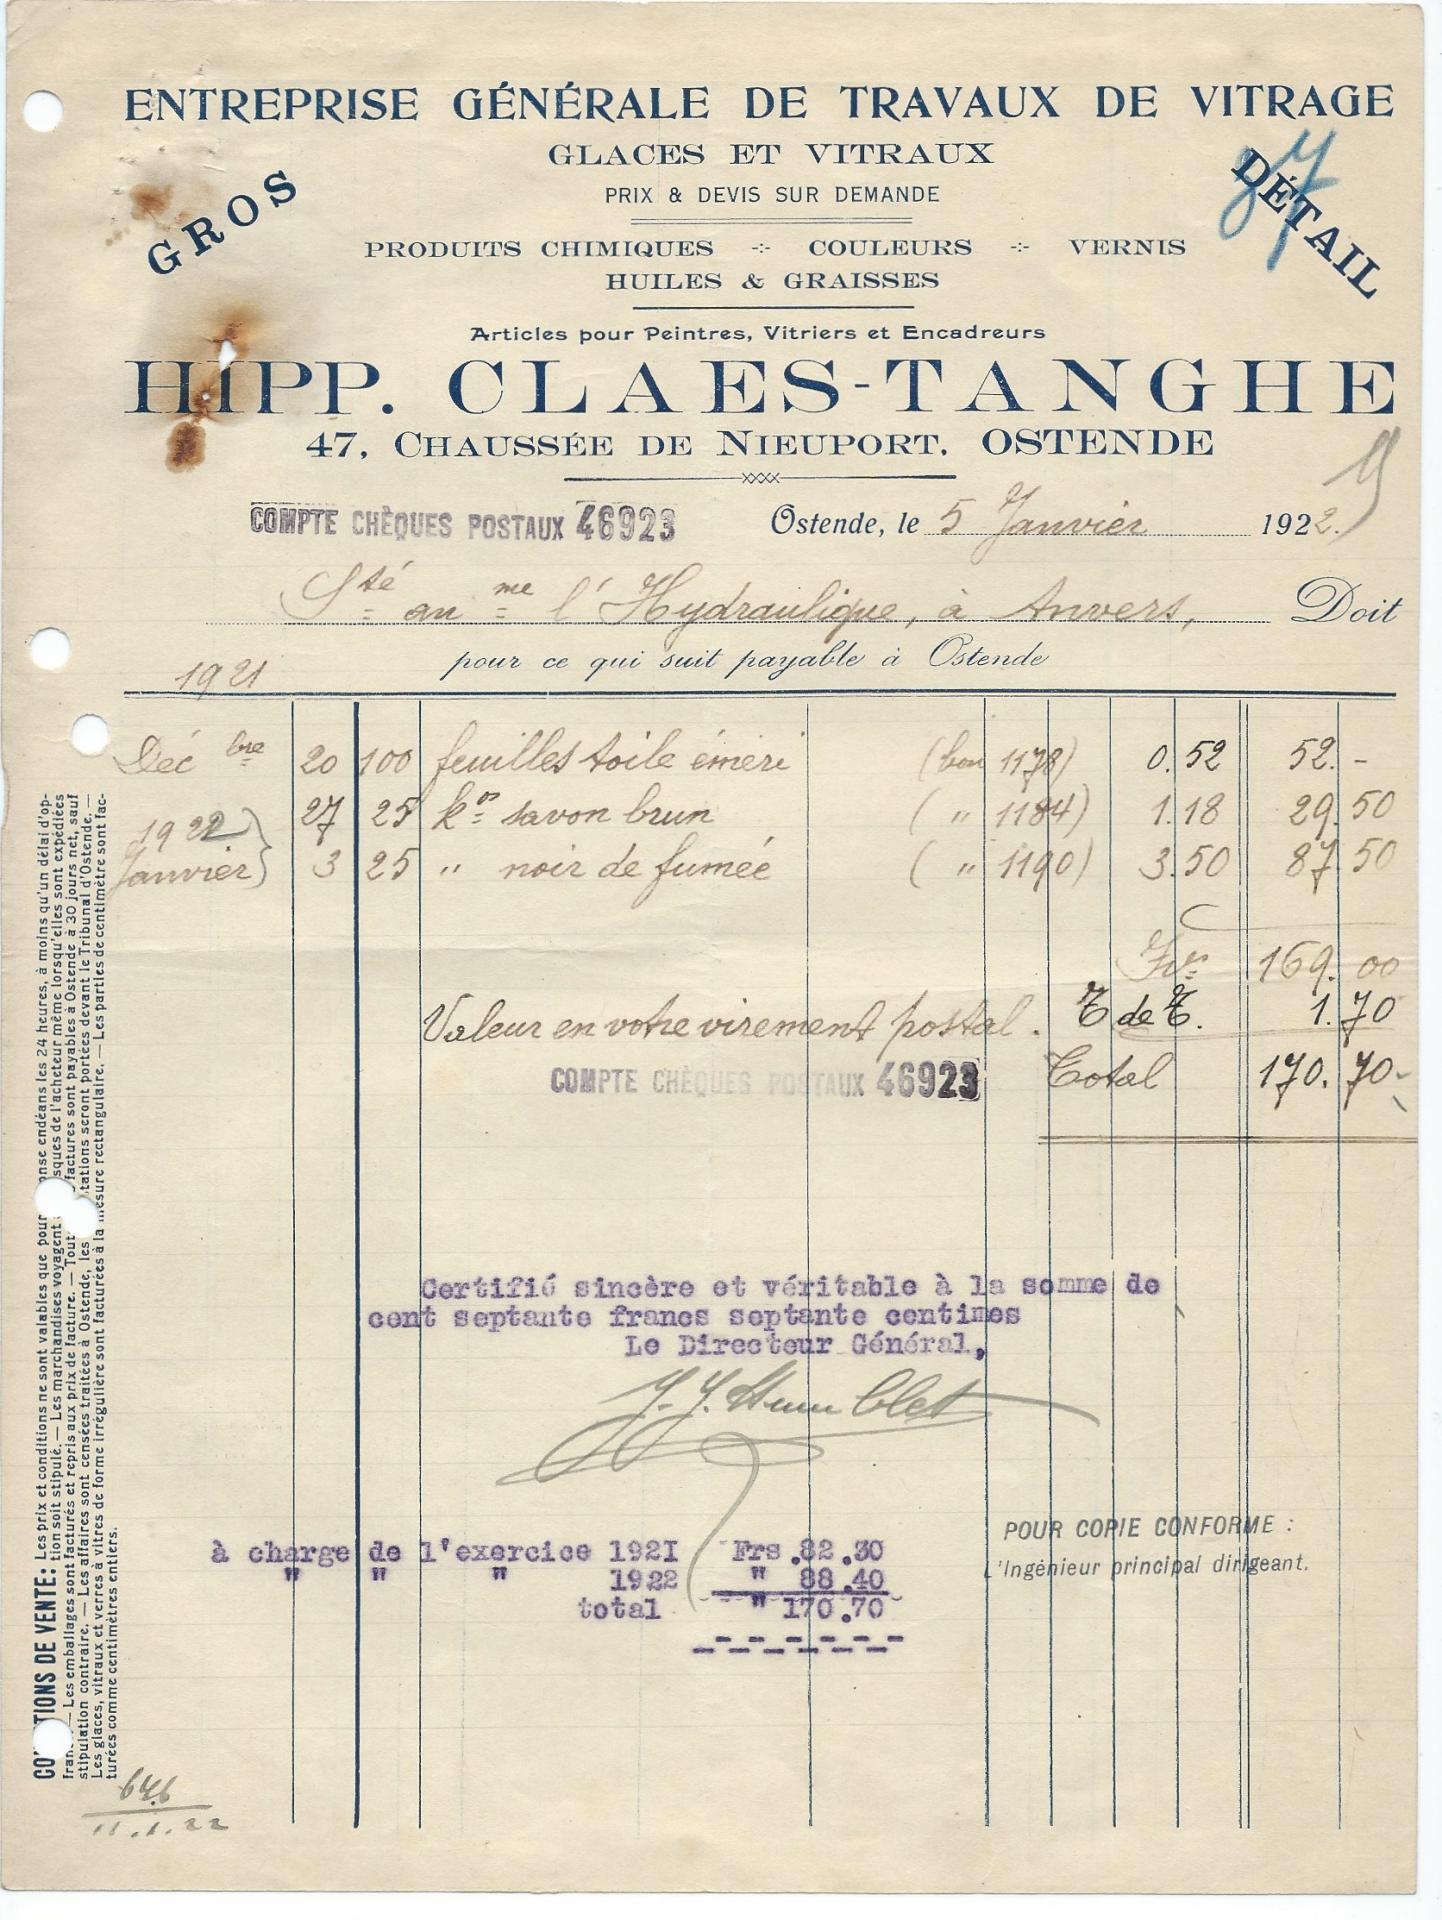 ENTREPRISE GÉNÉRALE DE TRAVAUX DE VITRAGE
GLACES ET VITRAUX
PRIX & DEVIS SUR DEMANDE
GROS
DÉTAIL
PRODUITS CHIMIQUES ·:· COULEURS ·:· VERNIS
HUILES & GRAISSES
Articles pour Peintres, Vitriers et Encadreurs
HIPP. CLAES-TANGHE
47, CHAUSSÉE DE NIEUPORT, OSTENDE
COMPTE CHÈQUES POSTAUX 46923
Ostende, le 5 Janvier 1922.
Sté an me l'Hydraulique, à Anvers, Doit
pour ce qui suit payable à Ostende
1921
Déc bre 20 100 feuilles toile émeri (bon 1178) 0.52 52.-
27 25 kos savon brun ( " 1184) 1.18 29.50
1922
Janvier 3 25 " noir de fumée ( " 1190) 3.50 87.50
Frs 169.00
Valeur en votre virement postal. T de T. 1.70
COMPTE CHÈQUES POSTAUX 46923 Total 170.70-
Certifié sincère et véritable à la somme de
cent septante francs septante centimes
Le Directeur Général,
POUR COPIE CONFORME :
L'Ingénieur principal dirigeant.
à charge de l'exercice 1921 Frs .82.30
" " " 1922 " 88.40
total " 170.70
CO TIONS DE VENTE: Les prix et conditions ne sont valables que pour onse endéans les 24 heures, à moins qu'un délai d'op-
tion soit stipulé. — Les marchandises voyagent sques de l'acheteur même lorsqu'elles sont expédiées
fran — Les emballages sont facturés et repris aux prix de facture. — Tout factures sont payables à Ostende à 30 jours net, sauf
stipulation contraire. — Les affaires sont censées traitées à Ostende, les tations seront portées devant le Tribunal d'Ostende. —
Les glaces, vitraux et verres à vitres de forme irrégulière sont facturées à la mesure rectangulaire. — Les parties de centimètre sont fac-
turées comme centimètres entiers.
646
11.1.22